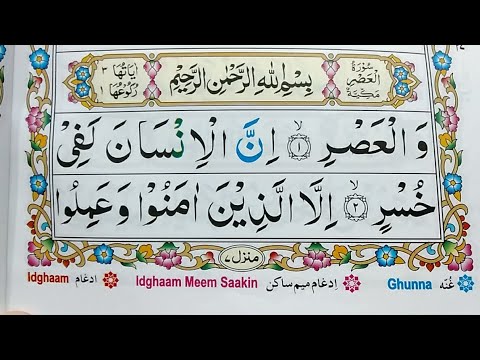 اٰيَاتُهَا ٣
رُكُوْعُهَا ١
بِسْمِ اللّٰهِ الرَّحْمٰنِ الرَّحِيْمِ
سُوْرَةُ
الْعَصْرِ
مَكِّيَّةٌ
وَالْعَصْرِ ۙ﴿۱﴾ اِنَّ الْاِنْسَانَ لَفِیْ
خُسْرٍ ۙ﴿۲﴾ اِلَّا الَّذِيْنَ اٰمَنُوْا وَعَمِلُوا
منزل ٧
Idghaam ادغام Idghaam Meem Saakin اِدغام میم ساکن Ghunna غُنّه